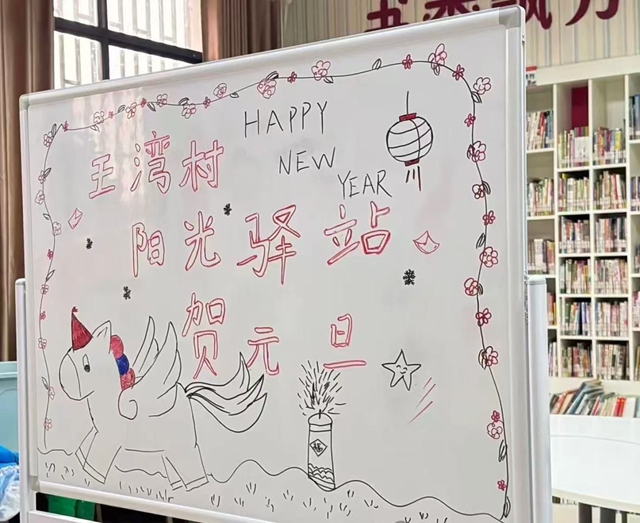 HAPPY
NEW
YEAR
王湾村
阳光驿站
贺元旦